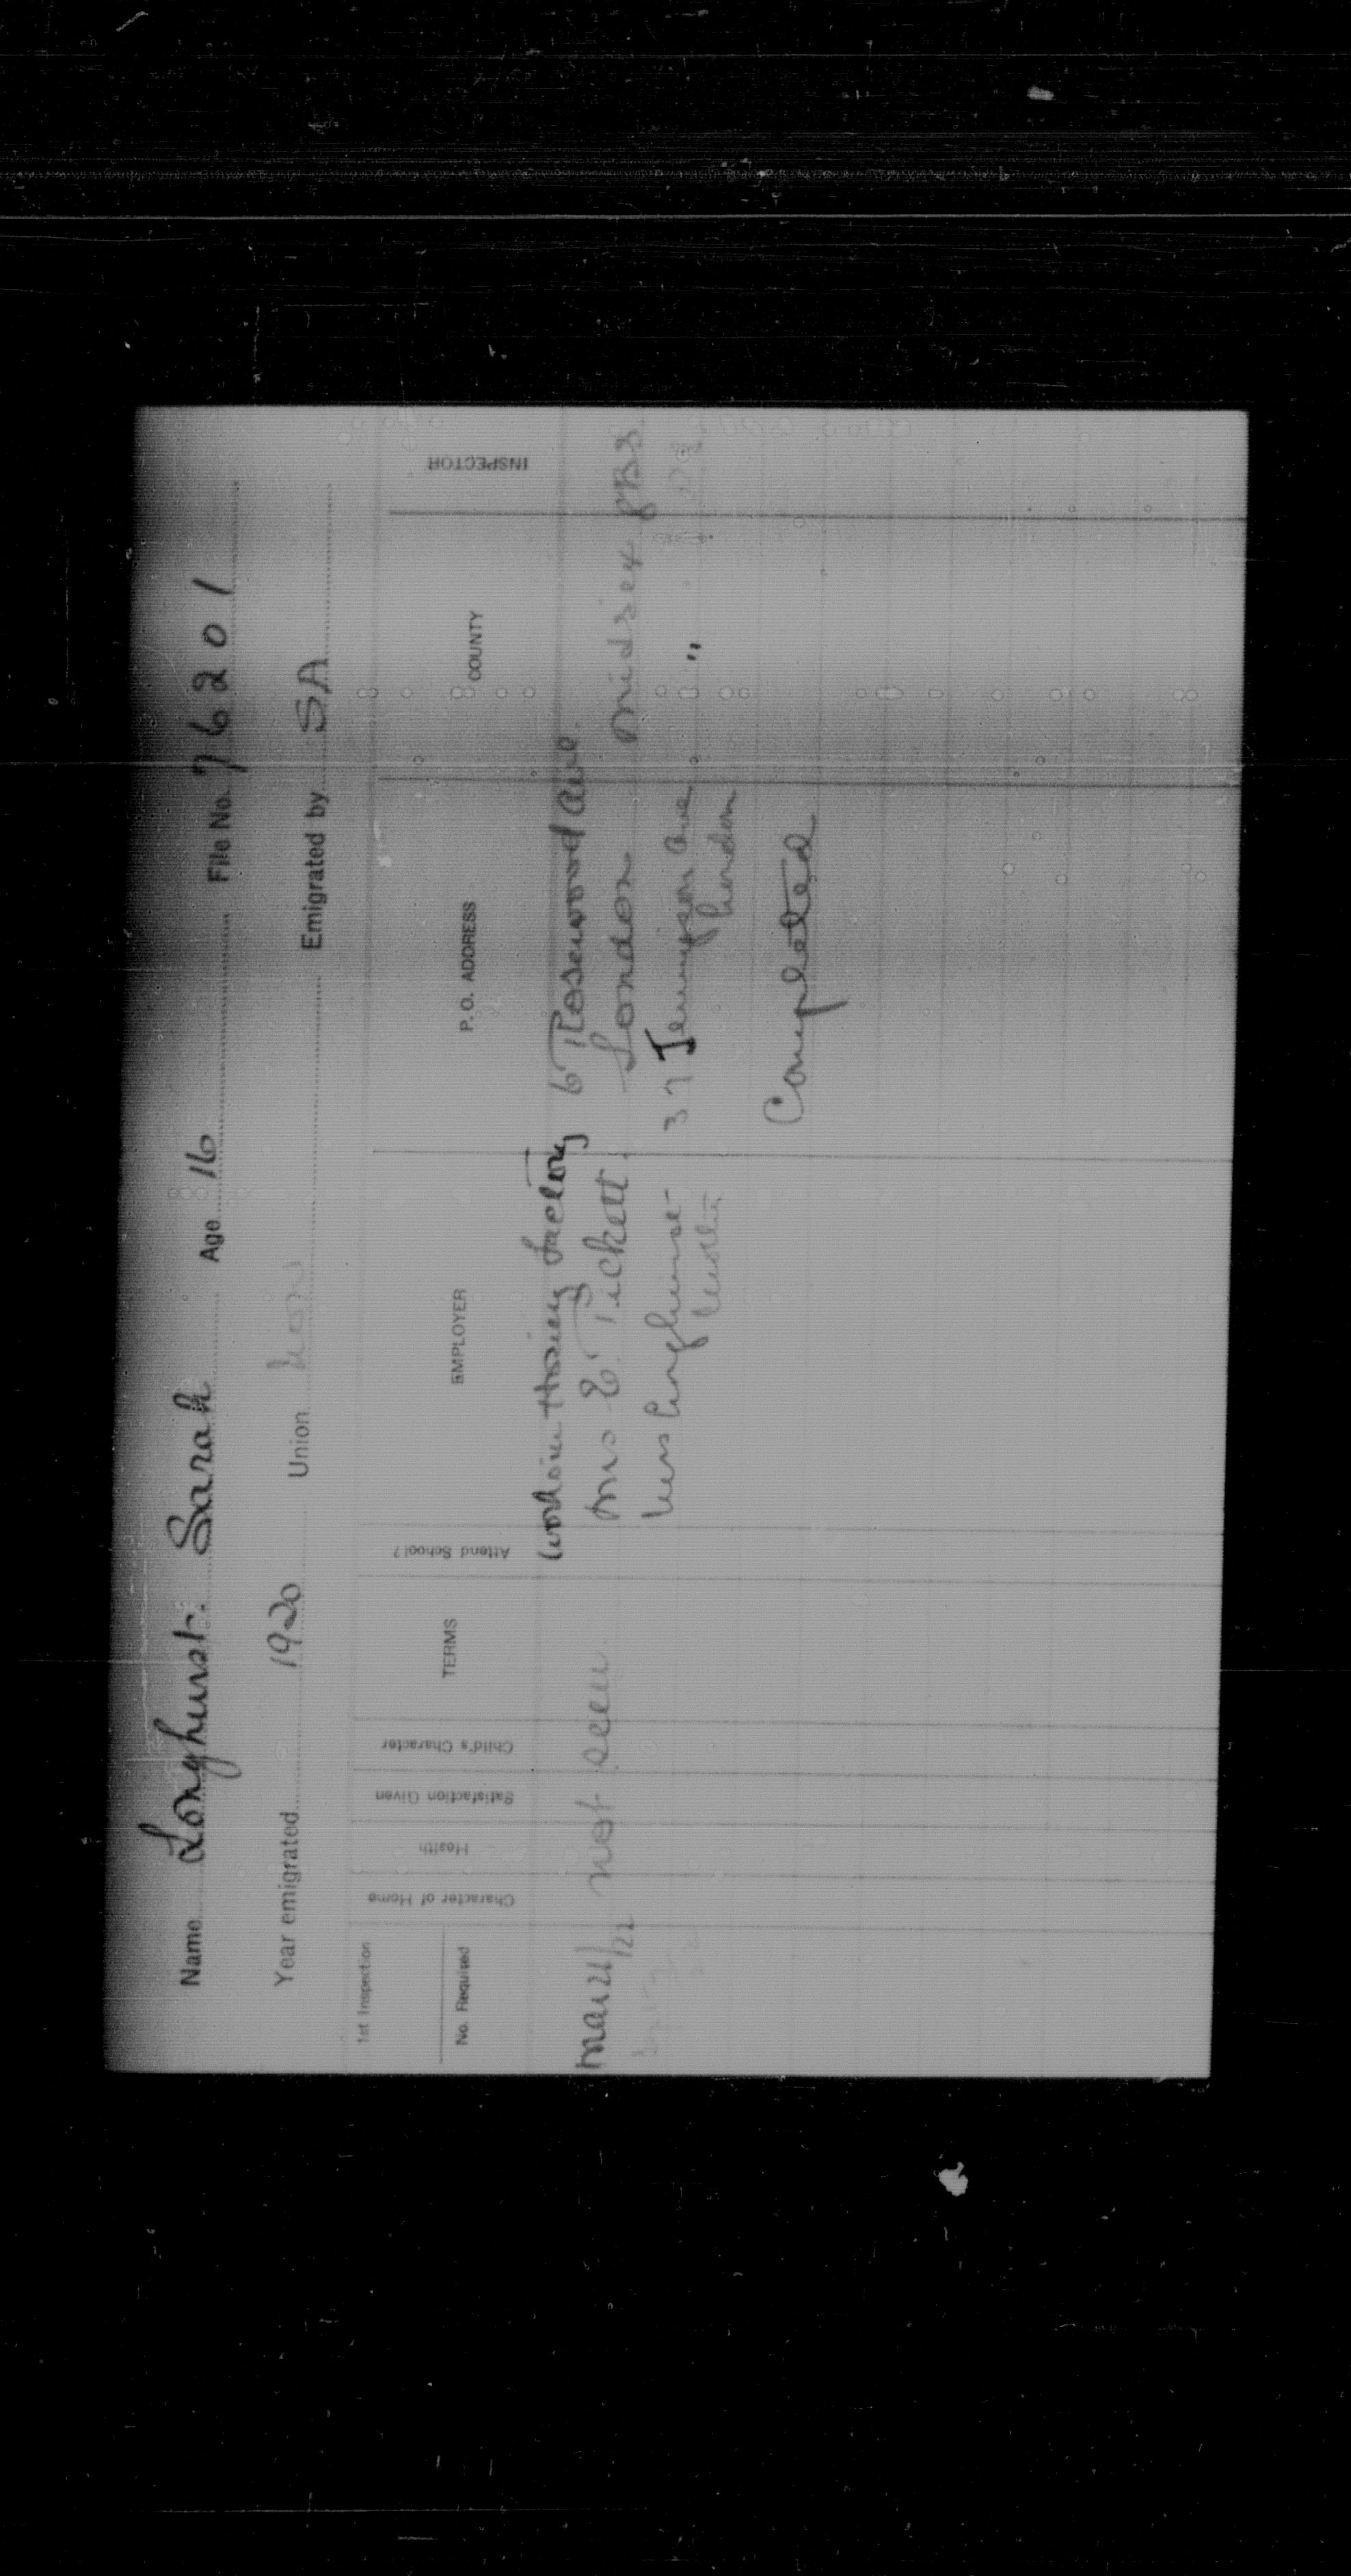 Name Longhurst. Sarah Age 16 File No. 76201
Year emigrated 1920 Union Non Emigrated by SA
1st Inspection
No. Required
Character of Home
Health
Satisfaction Given
Child's Character
TERMS
Attend School?
EMPLOYER
P. O. ADDRESS
COUNTY
INSPECTOR
Hosiery Factory 6 Rosewood ave.
Mar 21/22 not seen Mrs E. Tickett. London Midsex
Mrs Longhurst 37 Tennyson ave "
mother London
Completed